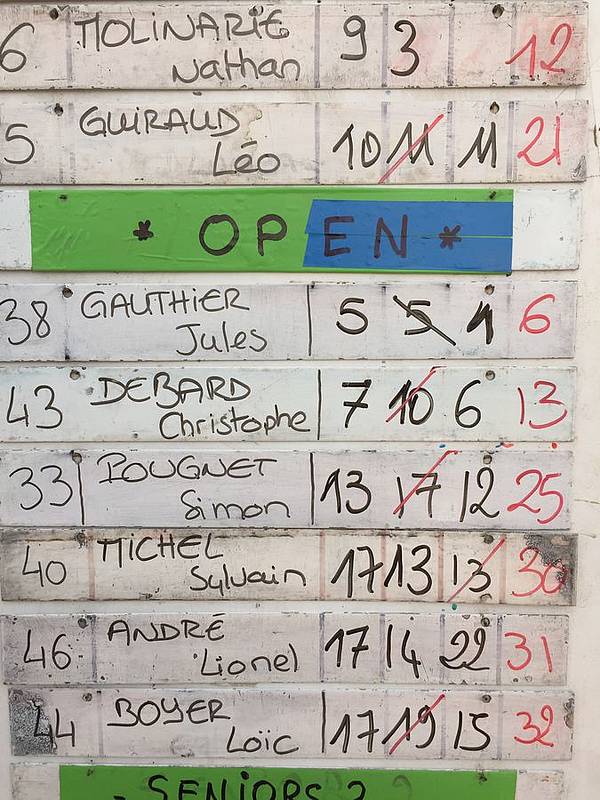 6 MOLINARIE 9 3 12
Nathan
5 GUIRAUD 10 11 11 21
Léo
* OPEN *
38 GAUTHIER 5 5 1 6
Jules
43 DEBARD 7 10 6 13
Christophe
33 POUGNET 13 17 12 25
Simon
40 MICHEL 17 13 13 30
Sylvain
46 ANDRÉ 17 14 22 31
Lionel
44 BOYER 17 19 15 32
Loïc
SENIORS 2